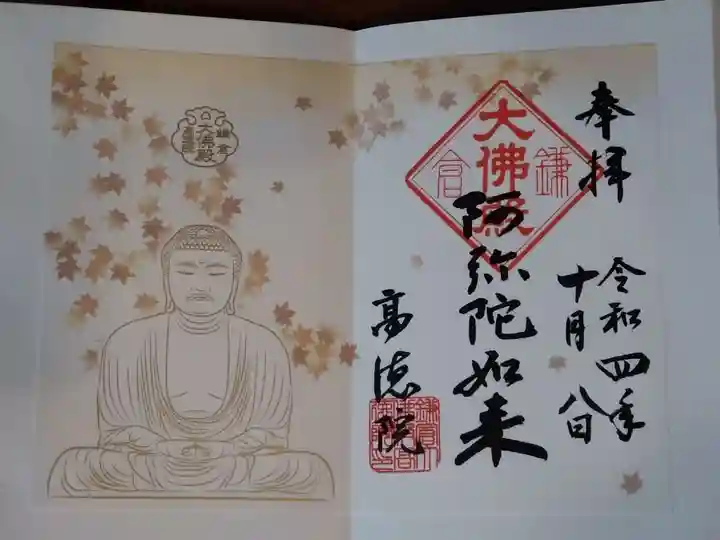 奉拝
令和四年
十月八日
鎌倉
大佛殿
阿弥陀如来
高徳院
大佛殿